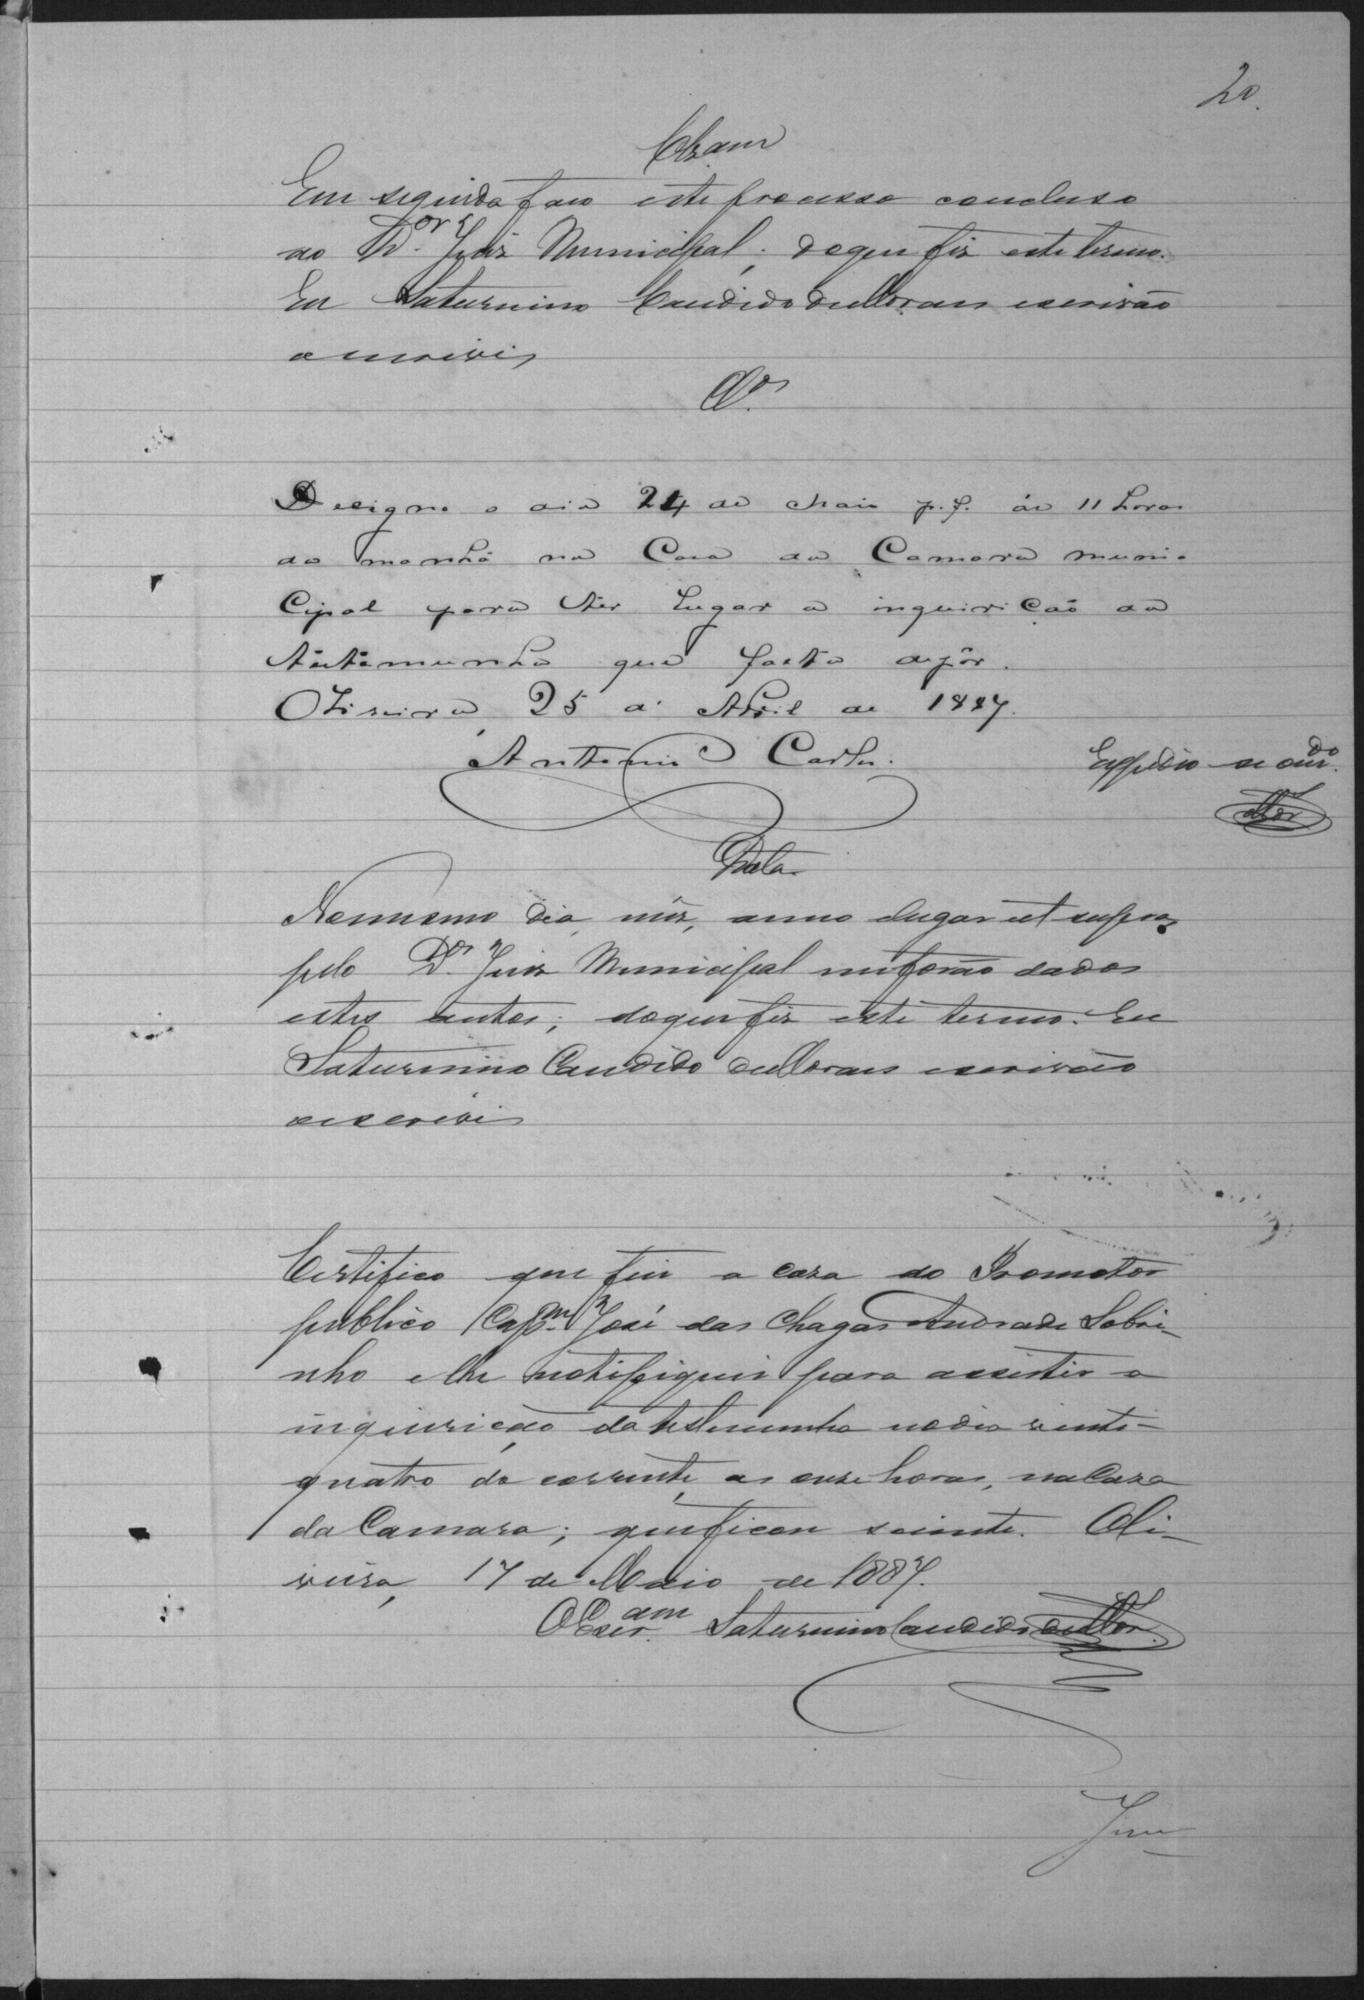 20.
Clzam
Em seguida faço este processo concluso
ao Dor. Juiz Municipal; do que fiz este termo.
Eu Saturnino Candido de Moraes escrivão
o escrivi
Clos.
Designo o dia 24 de Maio p.f. ás 11 horas
da manhã na Casa da Camara muni-
cipal para ter lugar a inquirição da
testemunha que falta depôr.
Oliveira, 25 de Abril de 1887.
Antonio Carlos.
Expedio-se mdo.
Mor
Data
No mesmo dia, mês, anno e lugar ut supra,
pelo Dr. Juiz Municipal me forão dados
estes autos; do que fiz este termo. Eu
Saturnino Candido de Moraes escrivão
o escrivi
Certifico que fui a caza do Promotor
publico Capm. José das Chagas Andrade Sobri-
nho e lhe notifiquei para assistir a
inquirição da testemunha no dia vinte-
quatro do corrente, as onze horas, na Caza
da Camara; que ficou sciente. Oli-
veira, 17 de Maio de 1887.
O Escram. Saturnino Candido de Mor.
Jun-